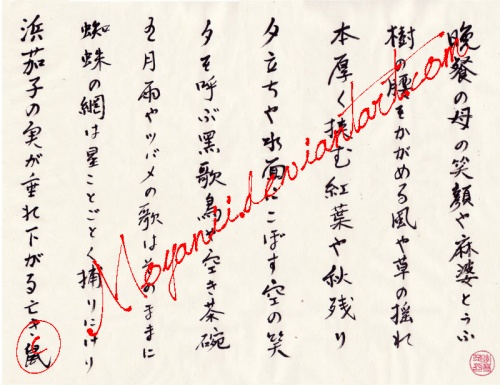 晩餐の母の笑顔や麻婆とうふ
樹の腰をかがめる風や草の揺れ
本厚く挟む紅葉や秋残り
夕立ちや水面にこぼす空の笑
夕を呼ぶ黒歌鳥や空き茶碗
五月雨やツバメの歌はのままに
蜘蛛の網は星ことごとく捕りにけり
浜茄子の実が垂れ下がる亡き鼠
Moyanii.deviantart.com